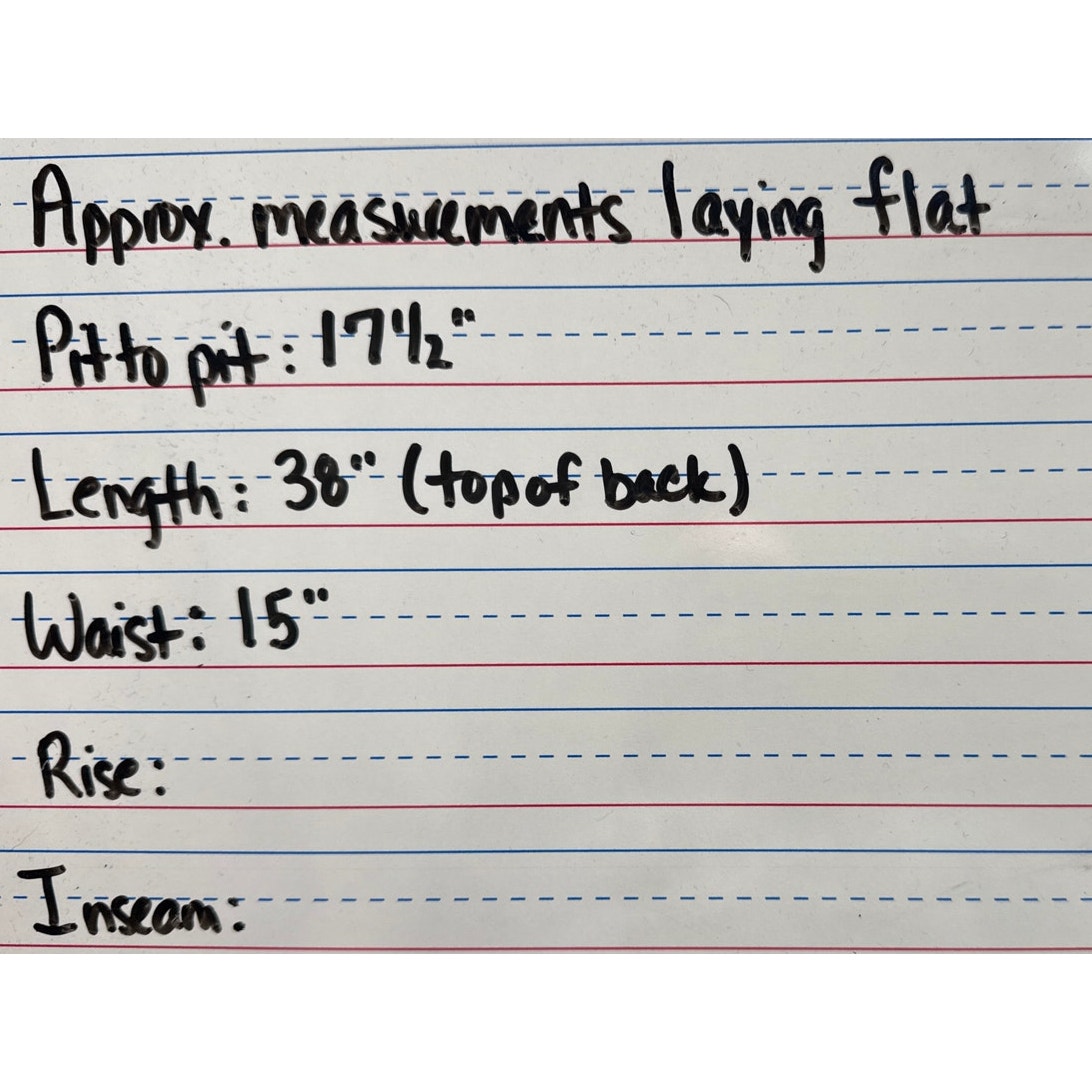 Approx. measurements laying flat
Pit to pit: 17 1/2"
Length: 38" (top of back)
Waist: 15"
Rise:
Inseam: